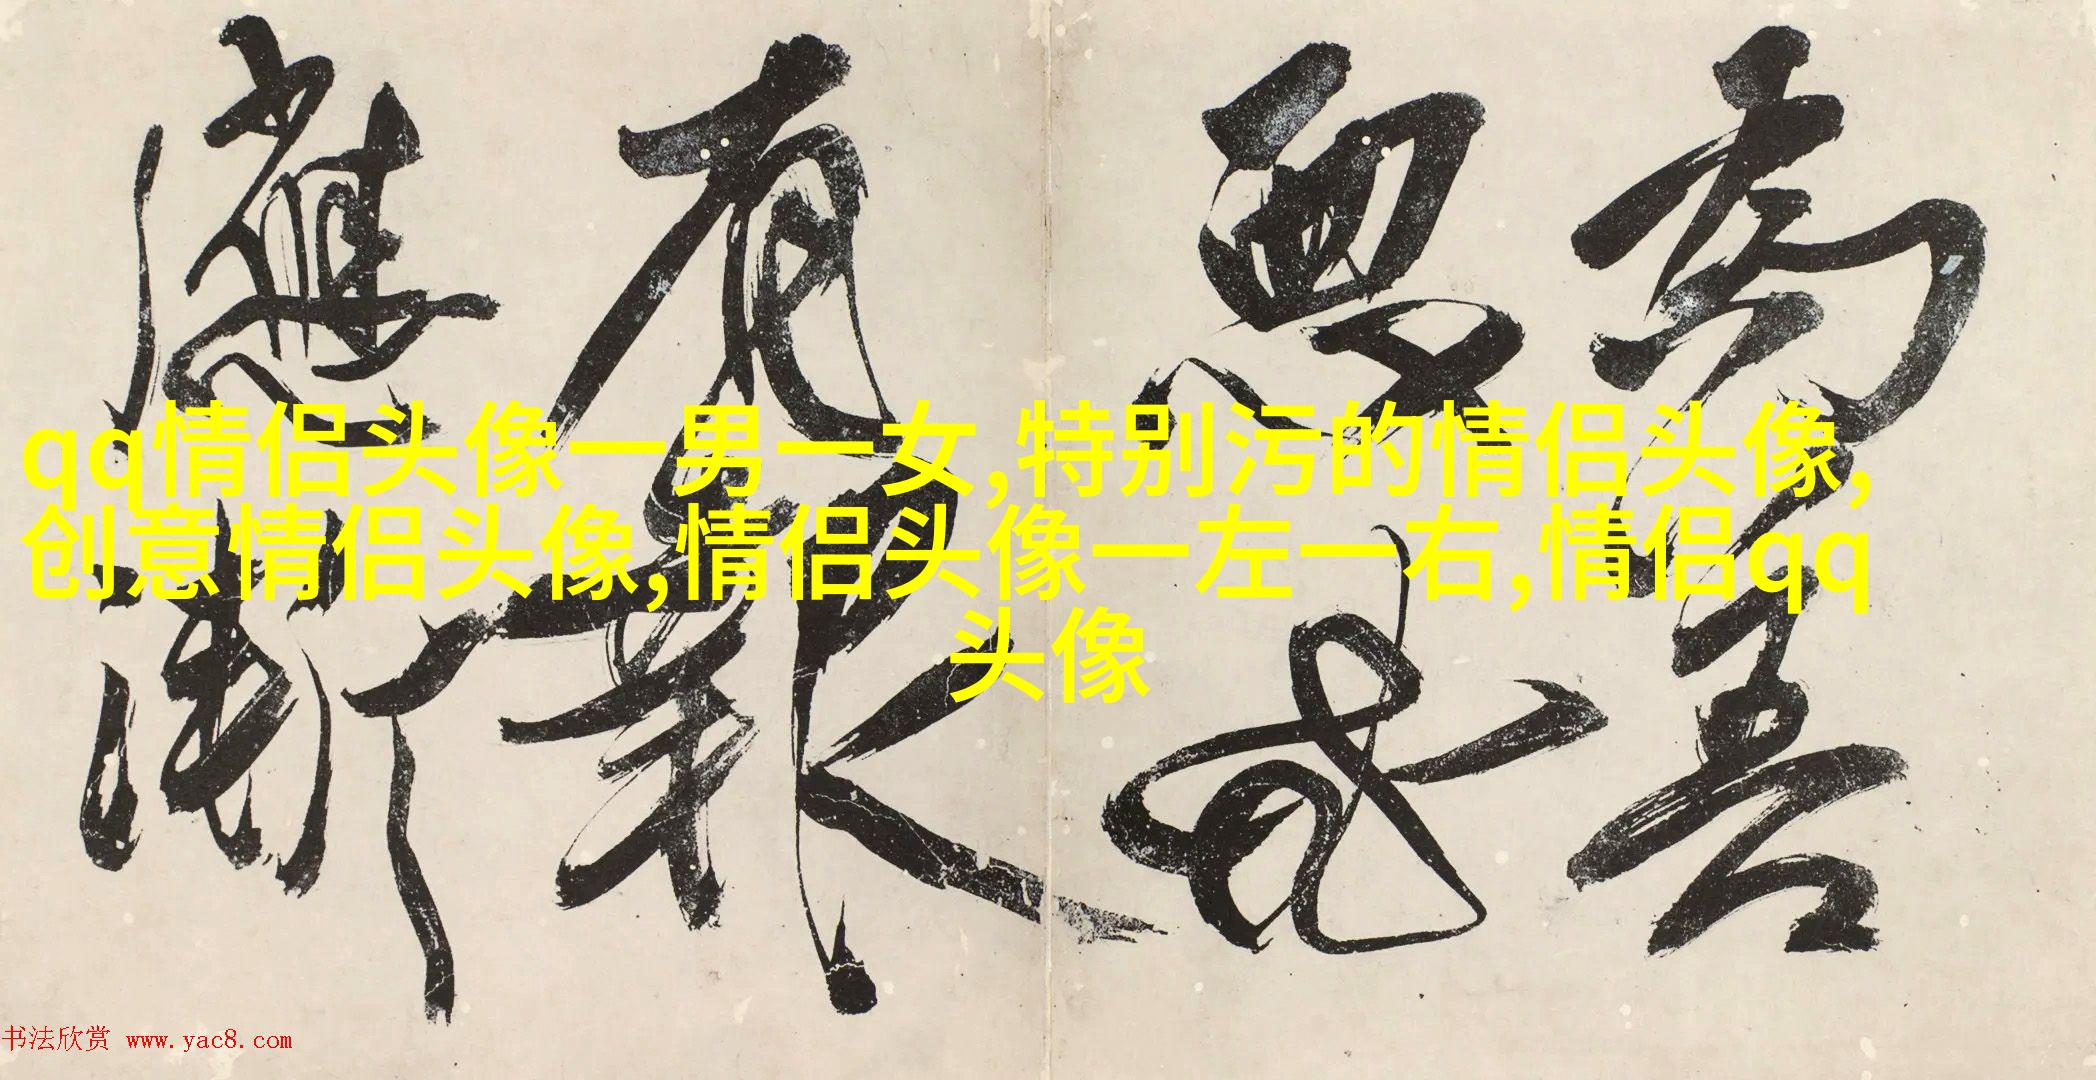 為善
惡
有報
應
qq情侣头像一男一女,特别污的情侣头像,
创意情侣头像,情侣头像一左一右,情侣qq
头像
书法欣赏 www.yac8.com